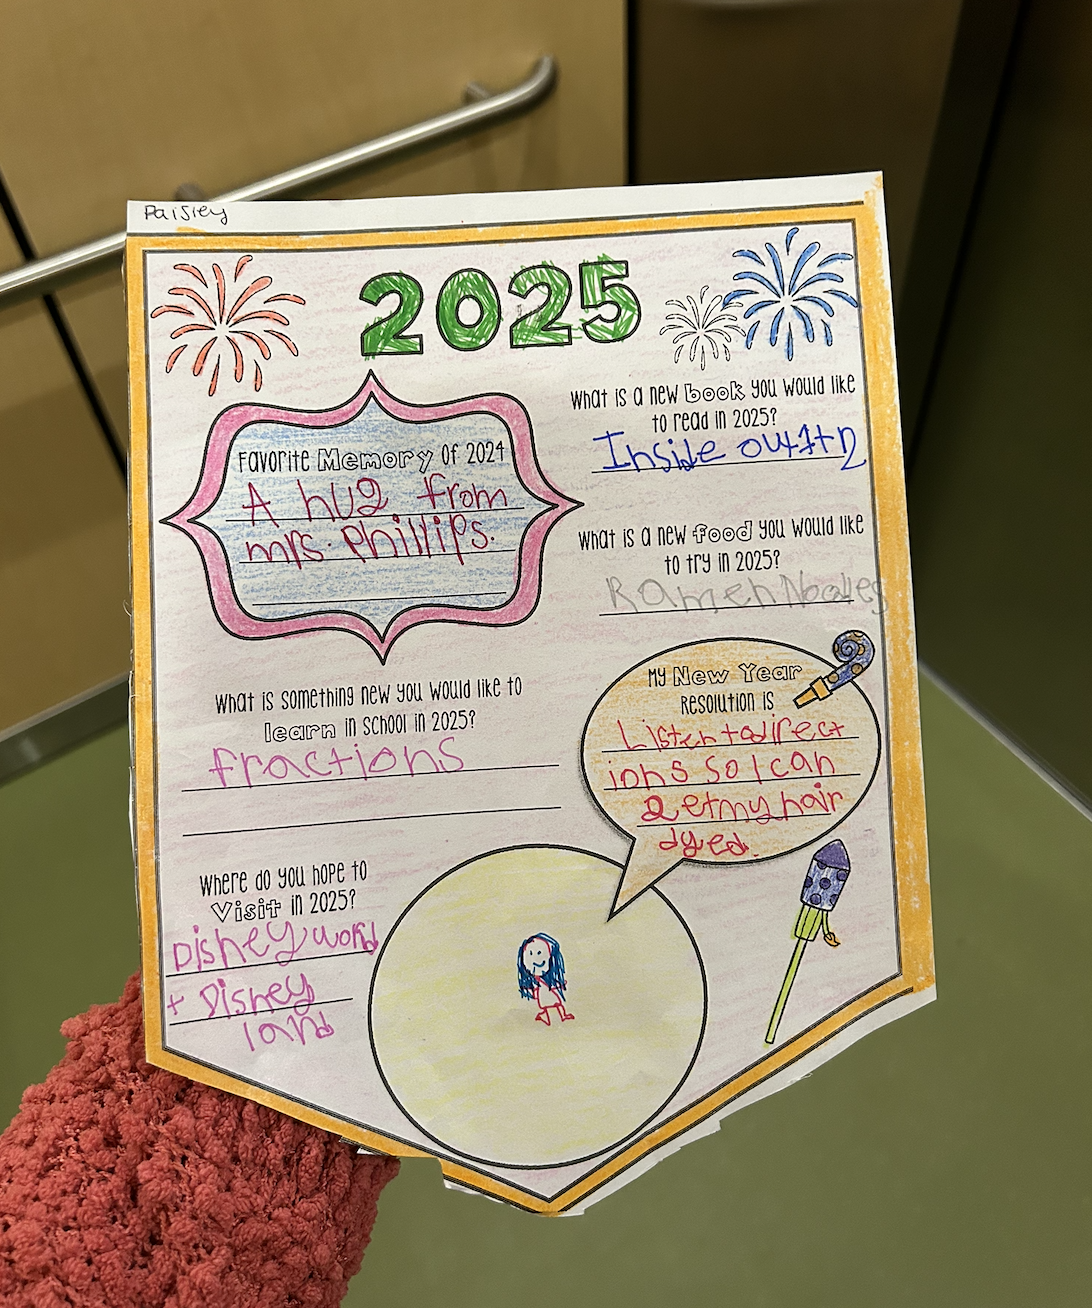 Paisley
2025
Favorite Memory of 2024
A hug from
mrs. Phillips.
What is a new book you would like
to read in 2025?
Inside out 1+2
What is a new food you would like
to try in 2025?
Ramen Noodles
What is something new you would like to
learn in school in 2025?
fractions
My New Year
Resolution is
Listen to direct
ions so I can
get my hair
dyed.
Where do you hope to
Visit in 2025?
Disney world
+ Disney
land